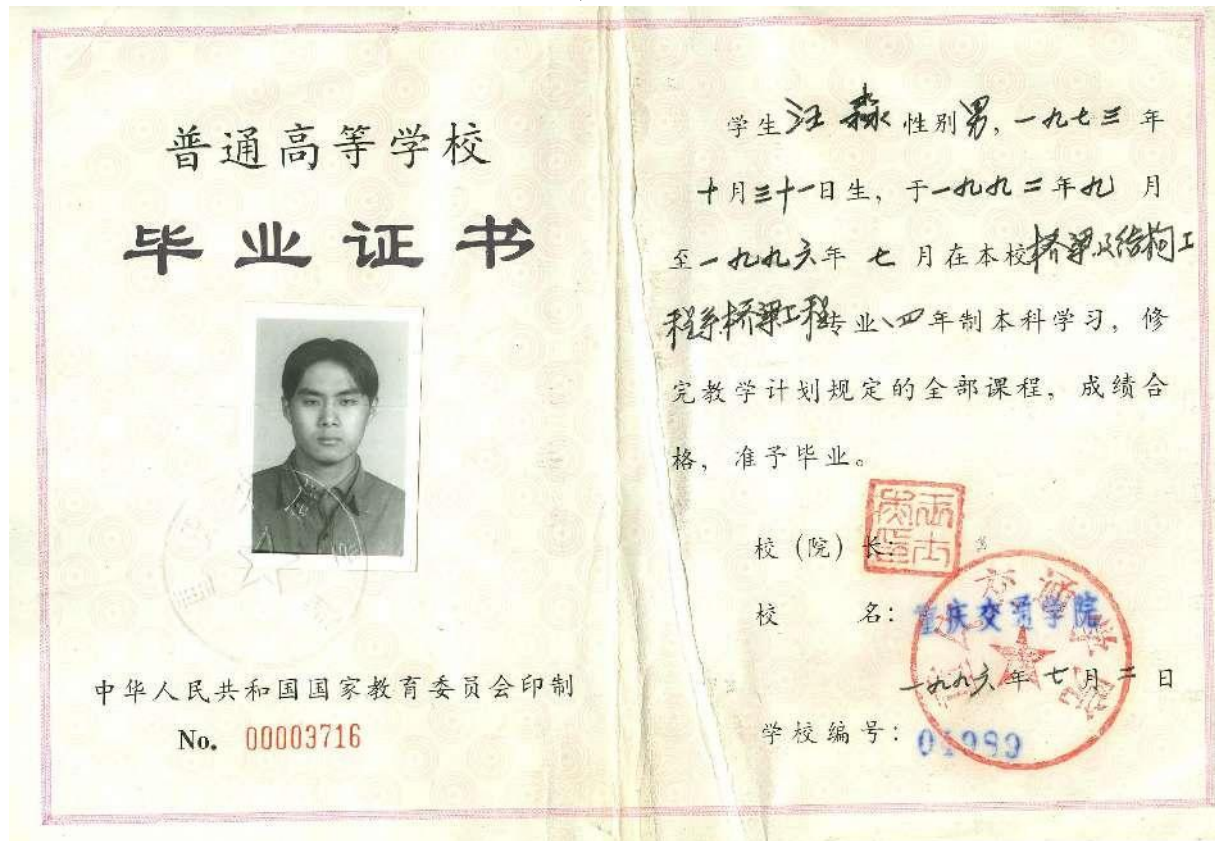 普通高等学校
毕业证书
中华人民共和国国家教育委员会印制
No. 00003716
学生汪淼 性别男,一九七三年
十月三十一日生,于一九九二年九月
至一九九六年 七 月在本校桥梁及结构工
程系桥梁工程专业、四年制本科学习,修
完教学计划规定的全部课程,成绩合
格,准予毕业。
校(院)长:
校 名:重庆交通学院
一九九六年七月二日
学校编号: